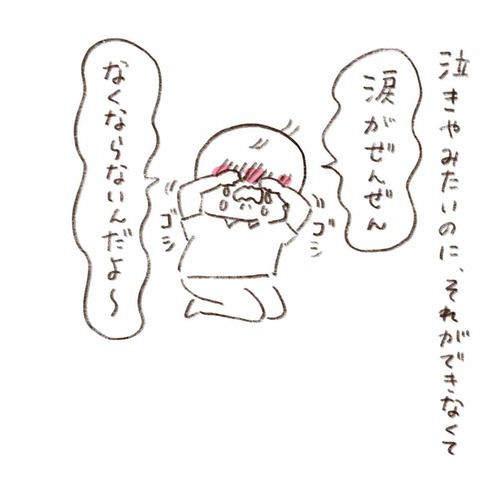 泣きやみたいのに、それができなくて
涙がぜんぜん
なくならないんだよ〜
ゴシ
ゴシ